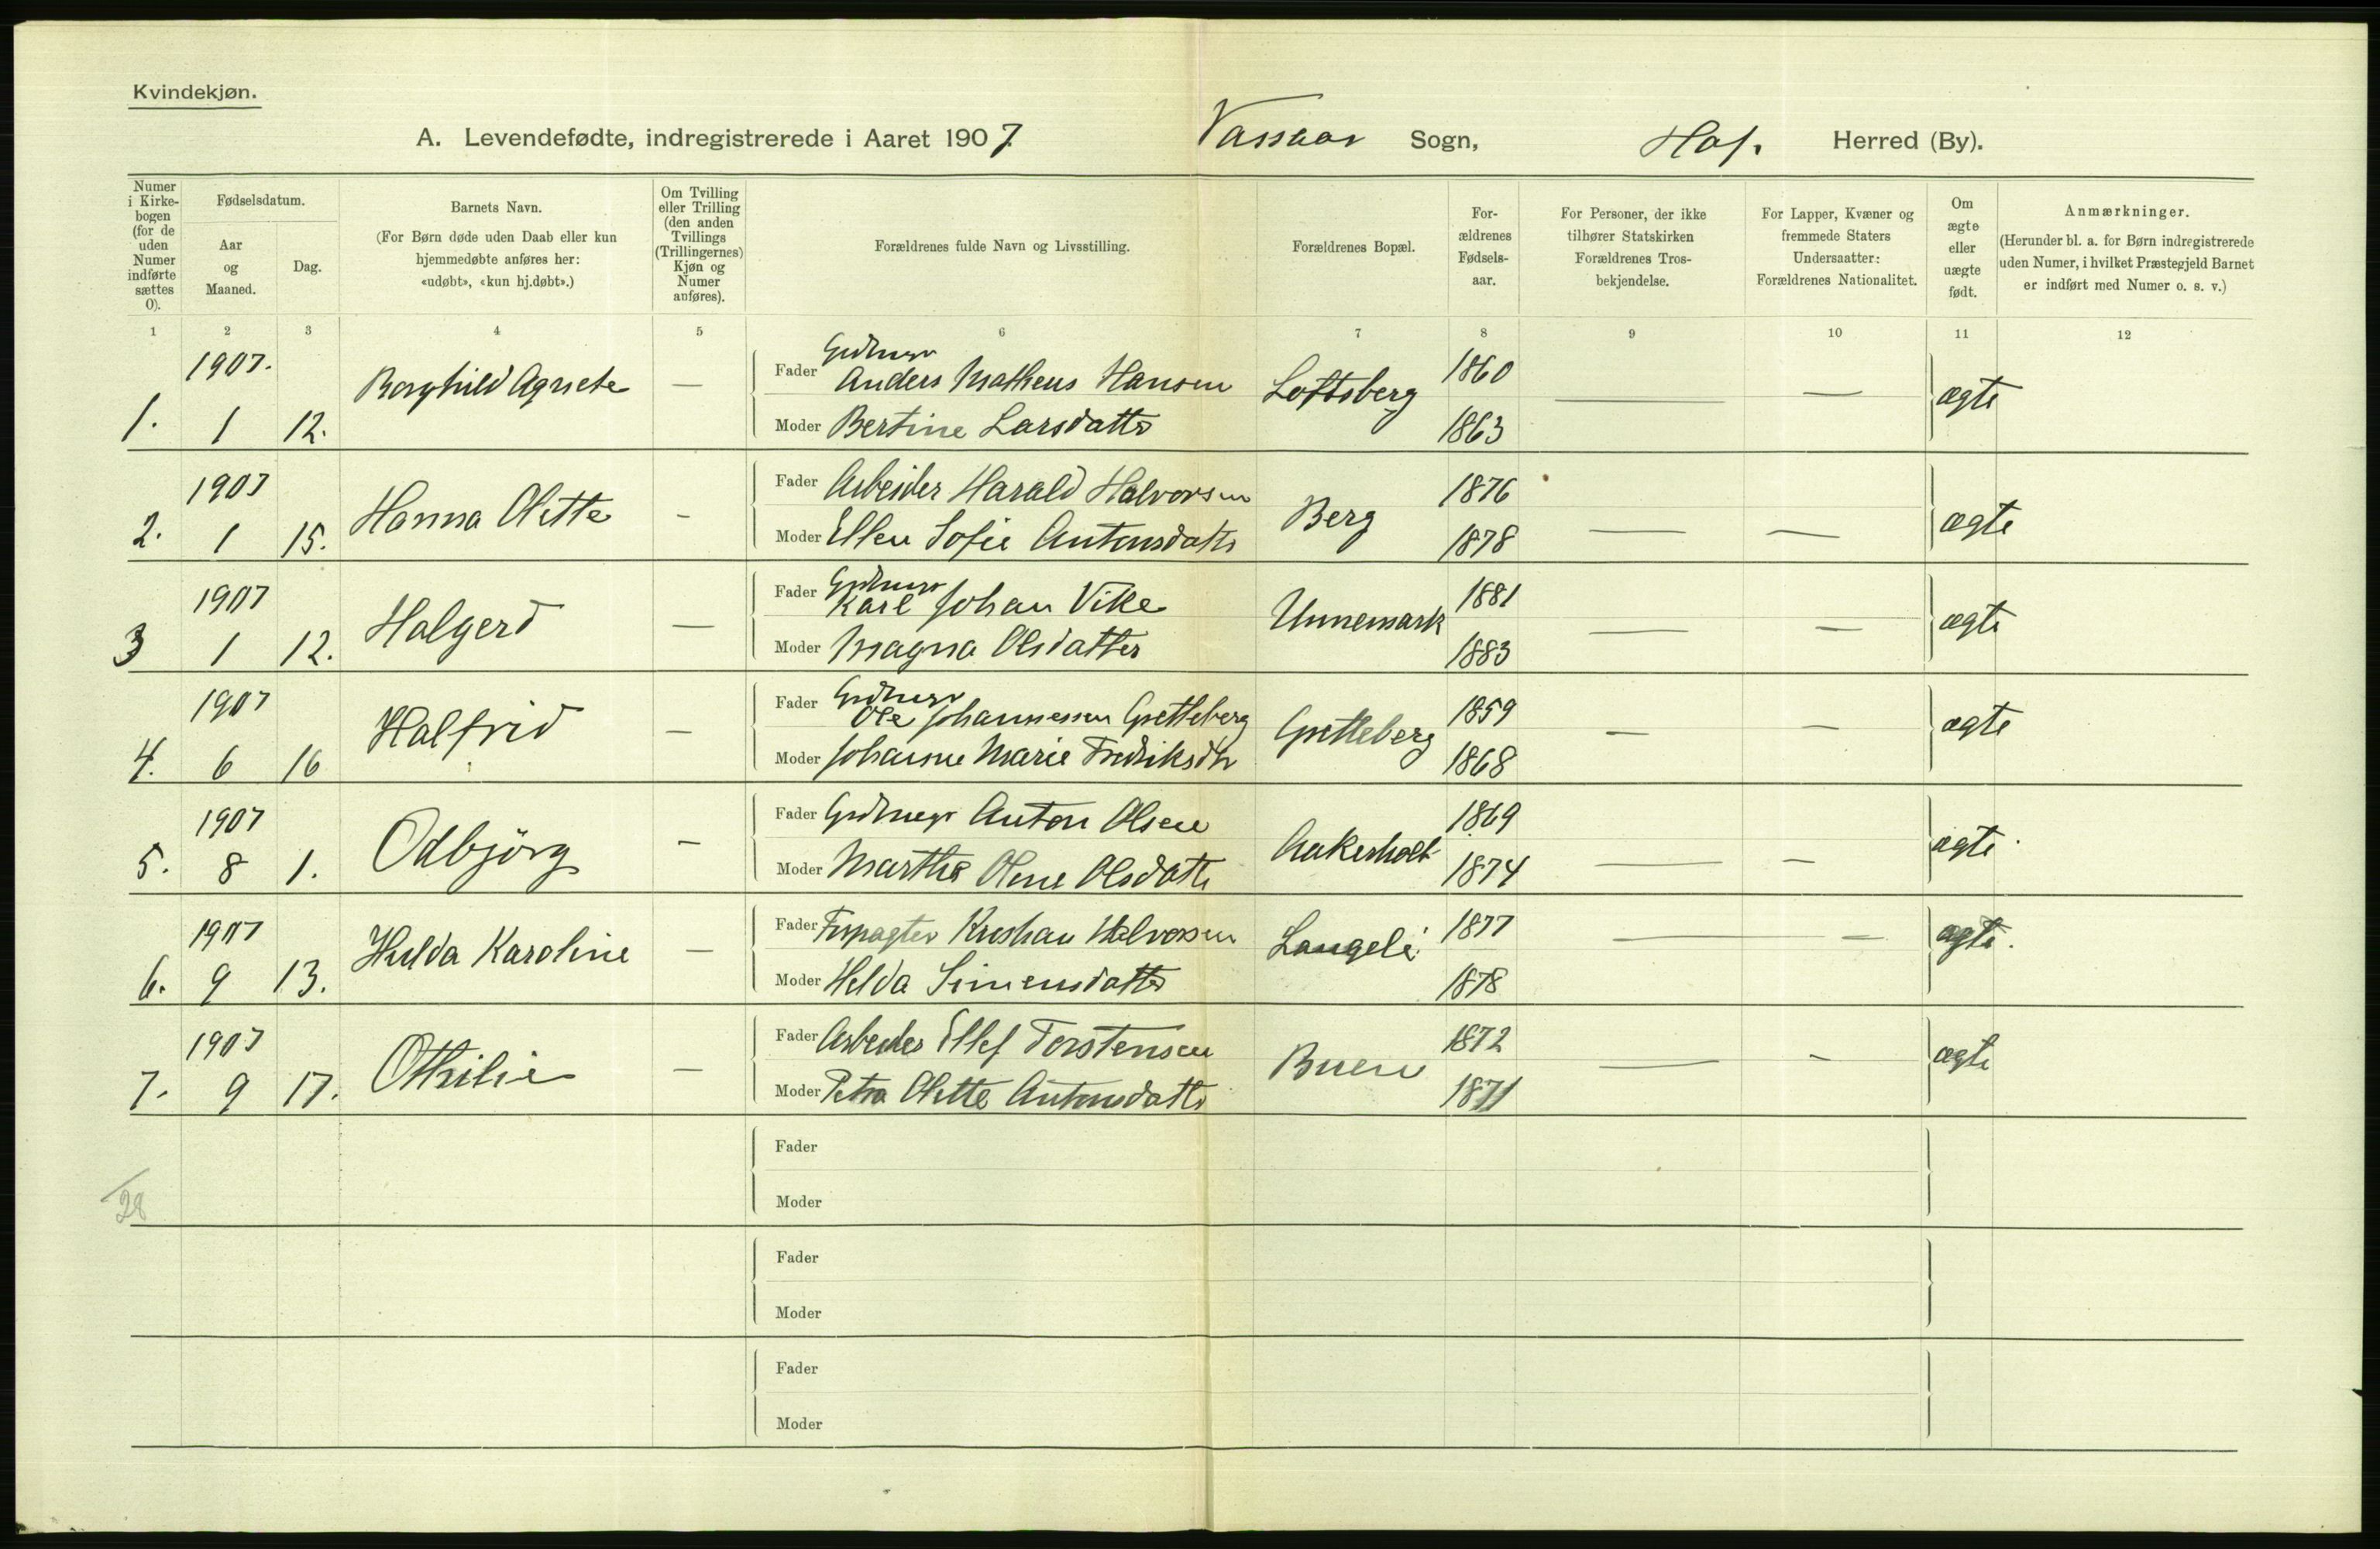 Kvindekjøn.
A. Levendefødte, indregistrerede i Aaret 1907. Vassaas Sogn, Hof. Herred (By).
Numer i Kirkebogen (for de uden Numer indførte sættes 0).
Fødselsdatum.
Aar og Maaned.
Dag.
Barnets Navn.
(For Børn døde uden Daab eller kun hjemmedøbte anføres her: «udøbt», «kun hj.døbt».)
Om Tvilling eller Trilling (den anden Tvillings (Trillingernes) Kjøn og Numer anføres).
Forældrenes fulde Navn og Livsstilling.
Forældrenes Bopæl.
Forældrenes Fødselsaar.
For Personer, der ikke tilhører Statskirken Forældrenes Trosbekjendelse.
For Lapper, Kvæner og fremmede Staters Undersaatter: Forældrenes Nationalitet.
Om ægte eller uægte født.
Anmærkninger.
(Herunder bl. a. for Børn indregistrerede uden Numer, i hvilket Præstegjeld Barnet er indført med Numer o. s. v.)
1 2 3 4 5 6 7 8 9 10 11 12
1907. Borghild Agnete — Fader Grdmgr Anders Matheus Hansen Loftsberg 1860 — — ægte
1. 1 12. Moder Bertine Larsdatter 1863
1907 Hanna Olette - Fader Arbeider Harald Halvorsen Berg 1876 — — ægte
2. 1 15. Moder Ellen Sofie Antonsdatter 1878
1907 Halgerd — Fader Grdmgr Karl Johan Vike Unnemark 1881 — — ægte
3 1 12. Moder Magna Olsdatter 1883
1907 Halfrid — Fader Grdmgr Ole Johannessen Gretteberg Gretteberg 1859 — — ægte
4. 6 16 Moder Johanne Marie Fredriksdtr 1868
1907 Odbjörg - Fader Grdmgr Anton Olsen Aakerholt 1869 — — ægte
5. 8 1. Moder Marthe Oline Olsdatter 1874
1907 Hulda Karoline — Fader Kristian Halvorsen Langeli 1877 — — ægte.
6. 9 13. Moder Helda Simensdatter 1878
1907 Othilie — Fader Arbeider Ellef Torstensen Buen 1872 — — ægte
7. 9 17. Moder Petra Olette Antonsdatter 1871
Fader
Moder
Fader
Moder
Fader
Moder